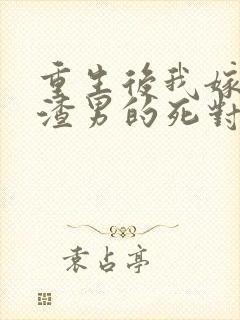 重生後我嫁
渣男的死對
袁占亭